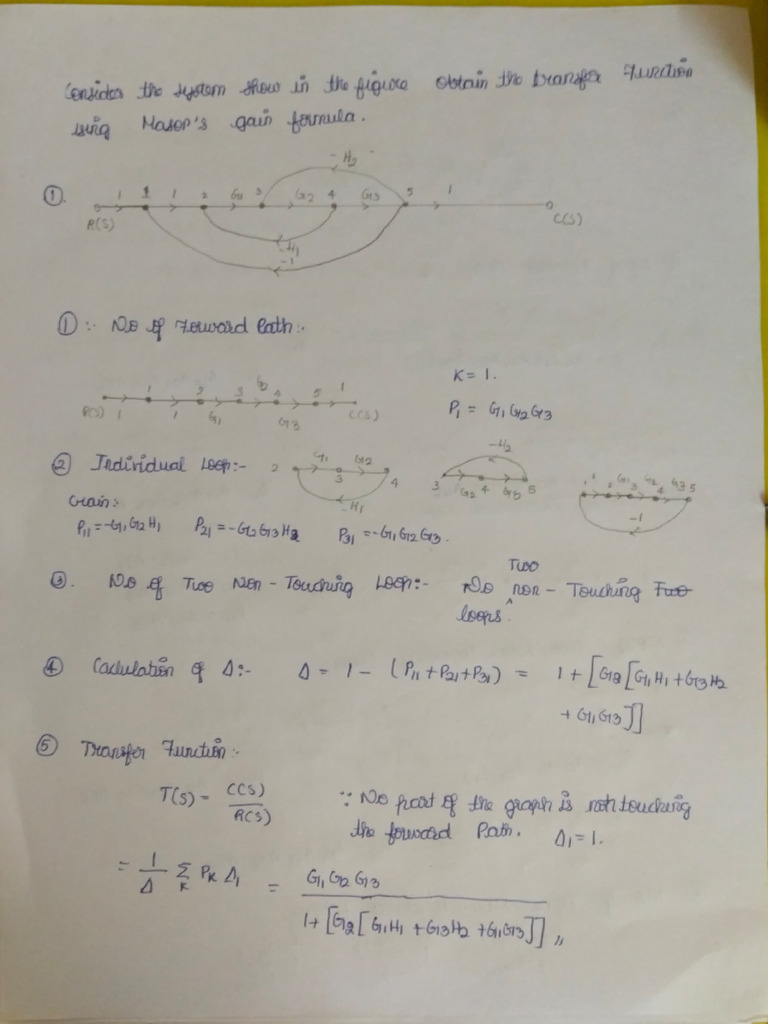 Consider the system show in the figure obtain the transfer Function
using Mason's gain formula.
-H2
①. 1 1 1 2 G1 3 G2 4 G3 5 1
R(S) C(S)
-H1
-1
① :- No of Forward Path:-
K = 1.
1 2 3 G2 4 5 1
R(S) 1 1 G1 G3 C(S)
P1 = G1 G2 G3
② Individual Loop:- 2 G1 3 G2 4 -H1
-H2 3 G2 4 G3 5
1 1 2 G1 3 G2 4 G3 5 -1
Gain:-
P11 = -G1 G2 H1 P21 = -G2 G3 H2 P31 = -G1 G2 G3.
③. No of Two Non-Touching Loop:- No Two non-Touching Two
loops.
④ Caculation of Δ:- Δ = 1 - (P11 + P21 + P31) = 1 + [G2 [G1 H1 + G3 H2
+ G1 G3]]
⑤ Transfer Function:-
T(S) = C(S)/R(S) ∵ No part of the graph is not touching
the forward Path. Δ1 = 1.
= 1/Δ Σ K PK Δ1 = G1 G2 G3
1 + [G2 [G1 H1 + G3 H2 + G1 G3]] //